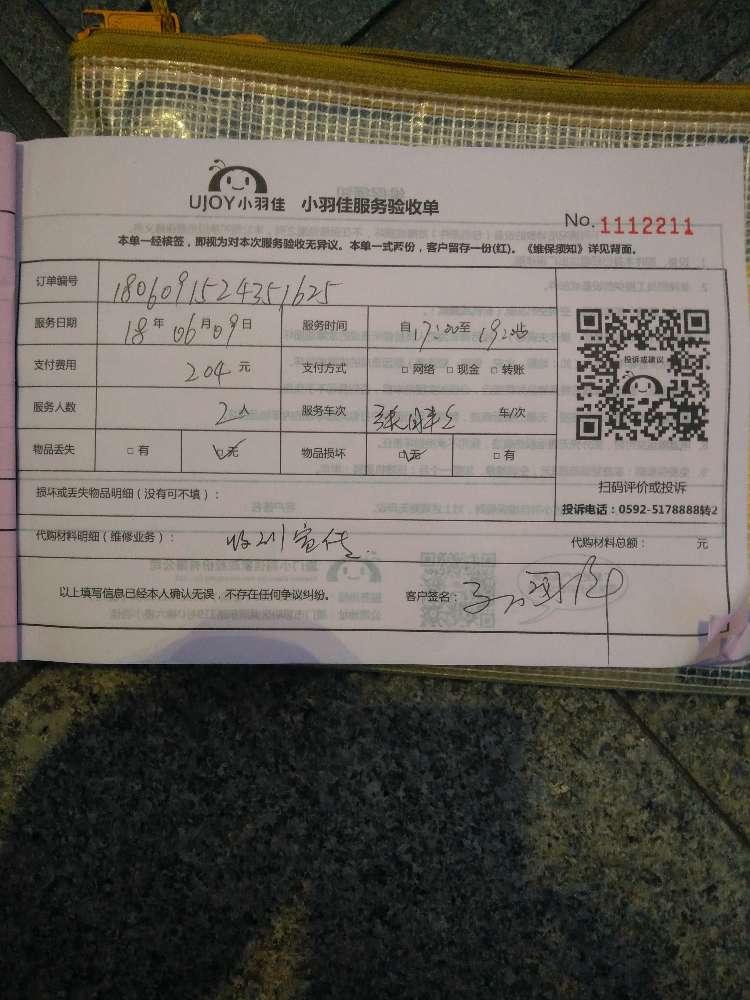 UJOY小羽佳 小羽佳服务验收单
No. 1112211
本单一经核签，即视为对本次服务验收无异议。本单一式两份，客户留存一份(红)。《维保须知》详见背面。
订单编号 1806091524351625
服务日期 18 年 06 月 09 日 服务时间 自 17:00 至 19:00 止
支付费用 204 元 支付方式 □ 网络 □ 现金 □ 转账
投诉或建议
服务人数 2人 服务车次 车/次
物品丢失 □ 有 □ 无 物品损坏 □ 无 □ 有
扫码评价或投诉
损坏或丢失物品明细（没有可不填）：
投诉电话：0592-5178888转2
代购材料明细（维修业务）： 宣传 代购材料总额： 元
以上填写信息已经本人确认无误，不存在任何争议纠纷。 客户签名：